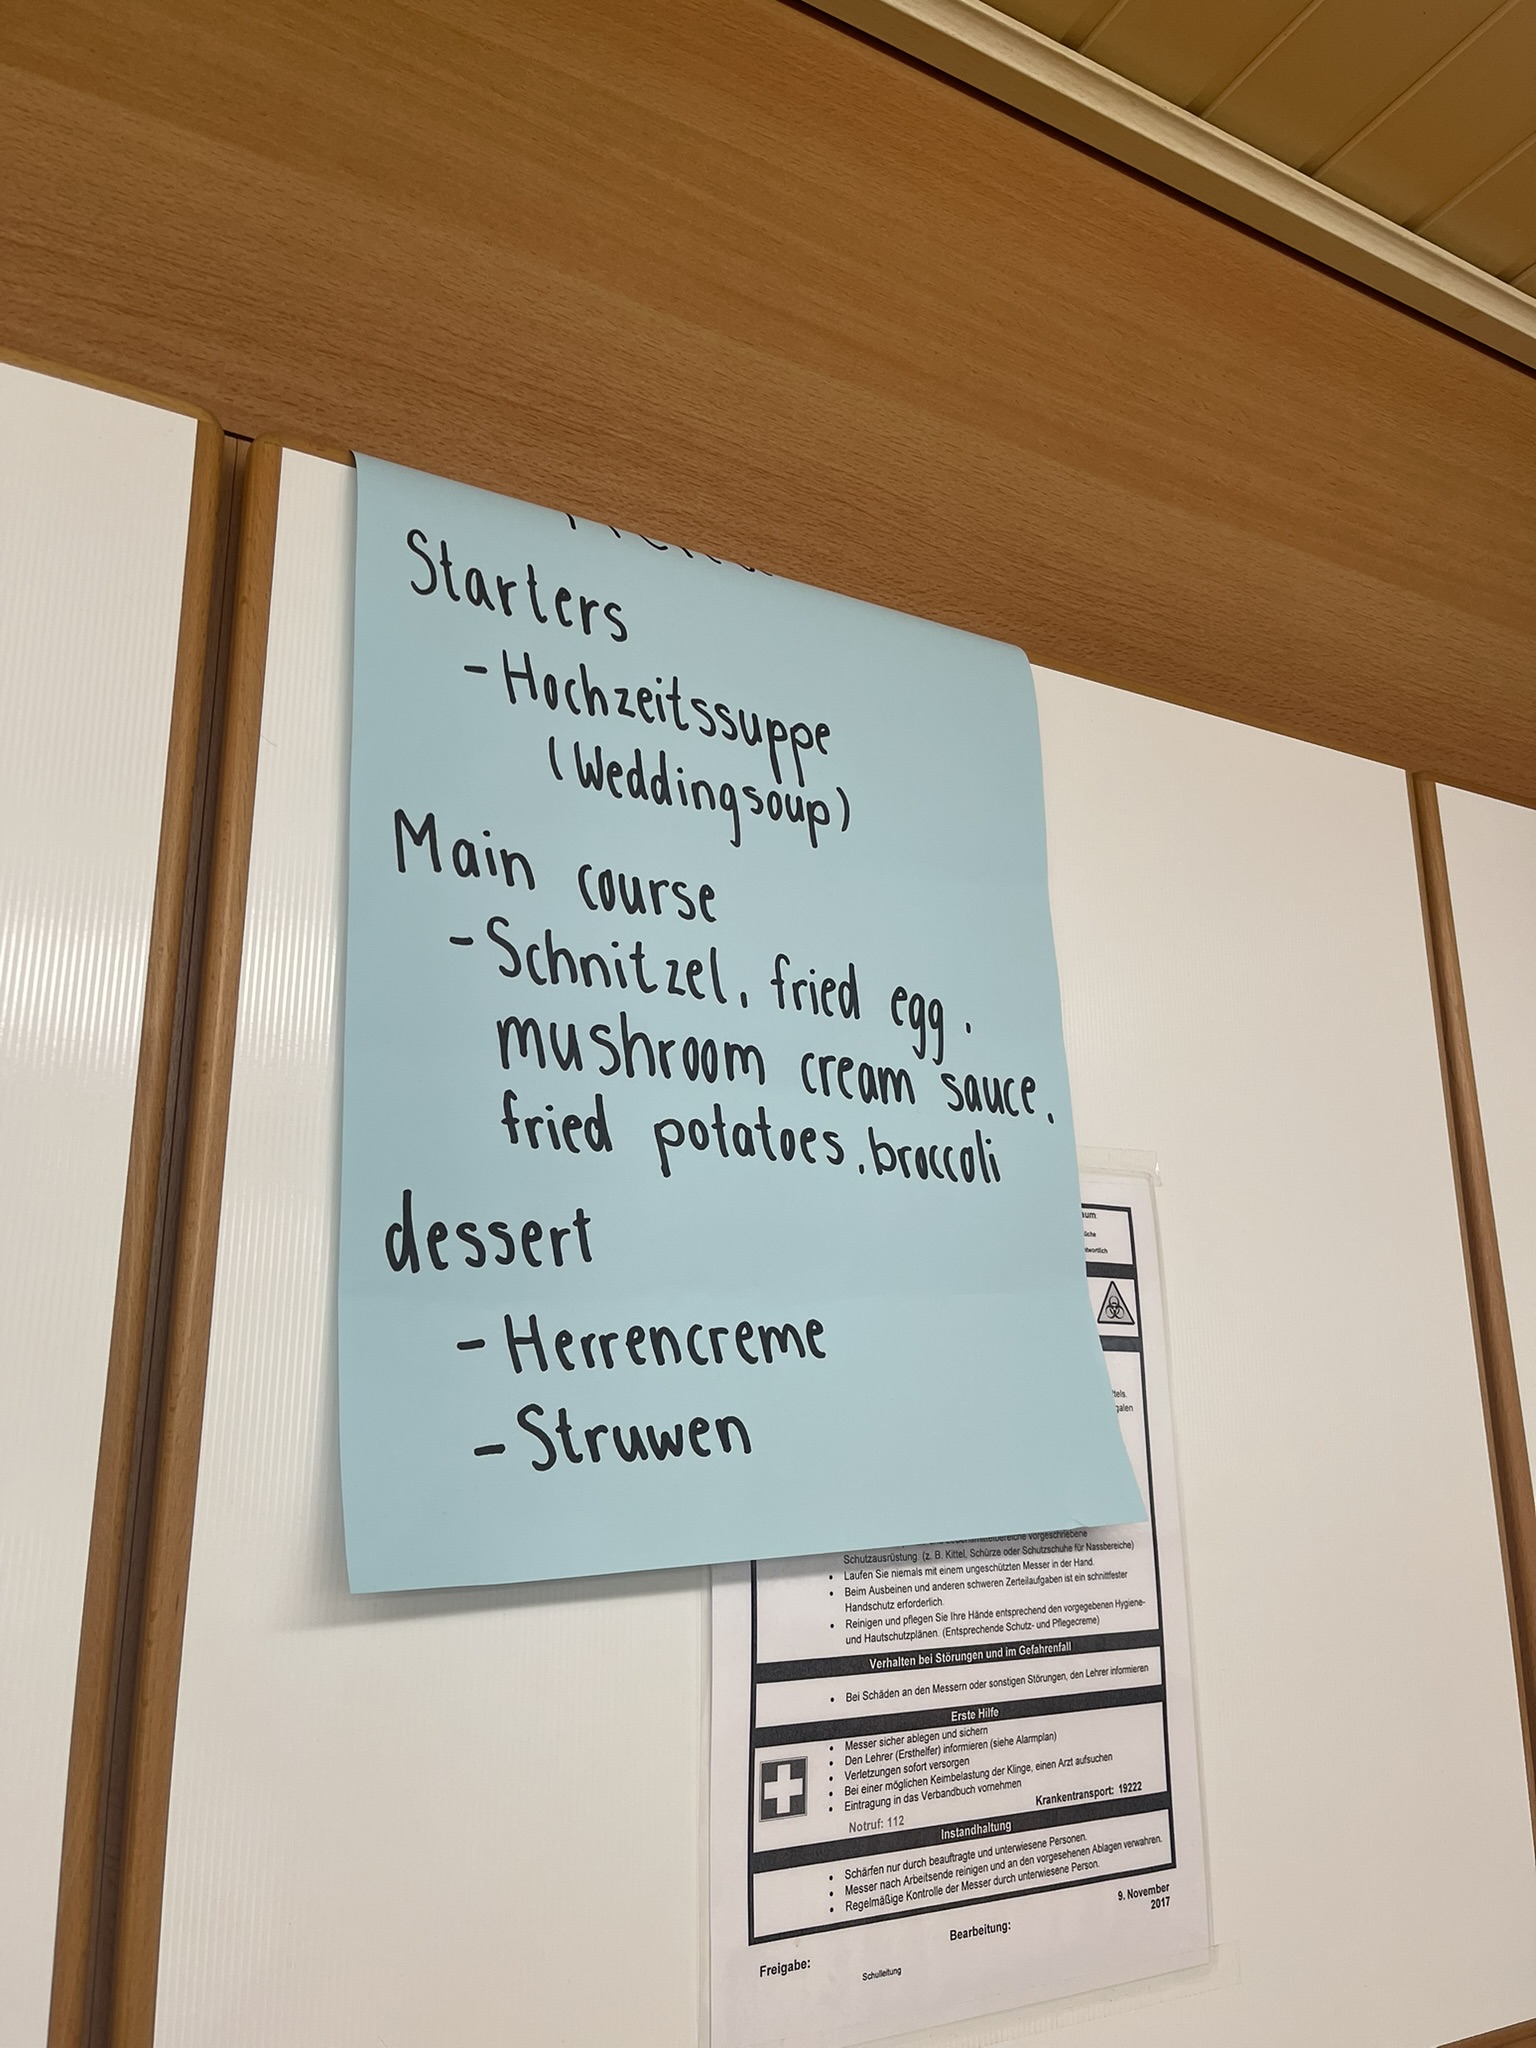 Starters
- Hochzeitssuppe
(Weddingsoup)
Main course
- Schnitzel, fried egg,
mushroom cream sauce,
fried potatoes, broccoli
dessert
- Herrencreme
- Struwen
vorgeschriebene
Schutzausrüstung. (z. B. Kittel, Schürze oder Schutzschuhe für Nassbereiche)
• Laufen Sie niemals mit einem ungeschützten Messer in der Hand.
• Beim Ausbeinen und anderen schweren Zerteilaufgaben ist ein schnittfester
Handschutz erforderlich.
• Reinigen und pflegen Sie Ihre Hände entsprechend den vorgegebenen Hygiene-
und Hautschutzplänen. (Entsprechende Schutz- und Pflegecreme)
Verhalten bei Störungen und im Gefahrenfall
• Bei Schäden an den Messern oder sonstigen Störungen, den Lehrer informieren
Erste Hilfe
• Messer sicher ablegen und sichern
• Den Lehrer (Ersthelfer) informieren (siehe Alarmplan)
• Verletzungen sofort versorgen
• Bei einer möglichen Keimbelastung der Klinge, einen Arzt aufsuchen
• Eintragung in das Verbandbuch vornehmen
Notruf: 112 Krankentransport: 19222
Instandhaltung
• Schärfen nur durch beauftragte und unterwiesene Personen.
• Messer nach Arbeitsende reinigen und an den vorgesehenen Ablagen verwahren.
• Regelmäßige Kontrolle der Messer durch unterwiesene Person.
9. November
2017
Freigabe: Bearbeitung:
Schulleitung